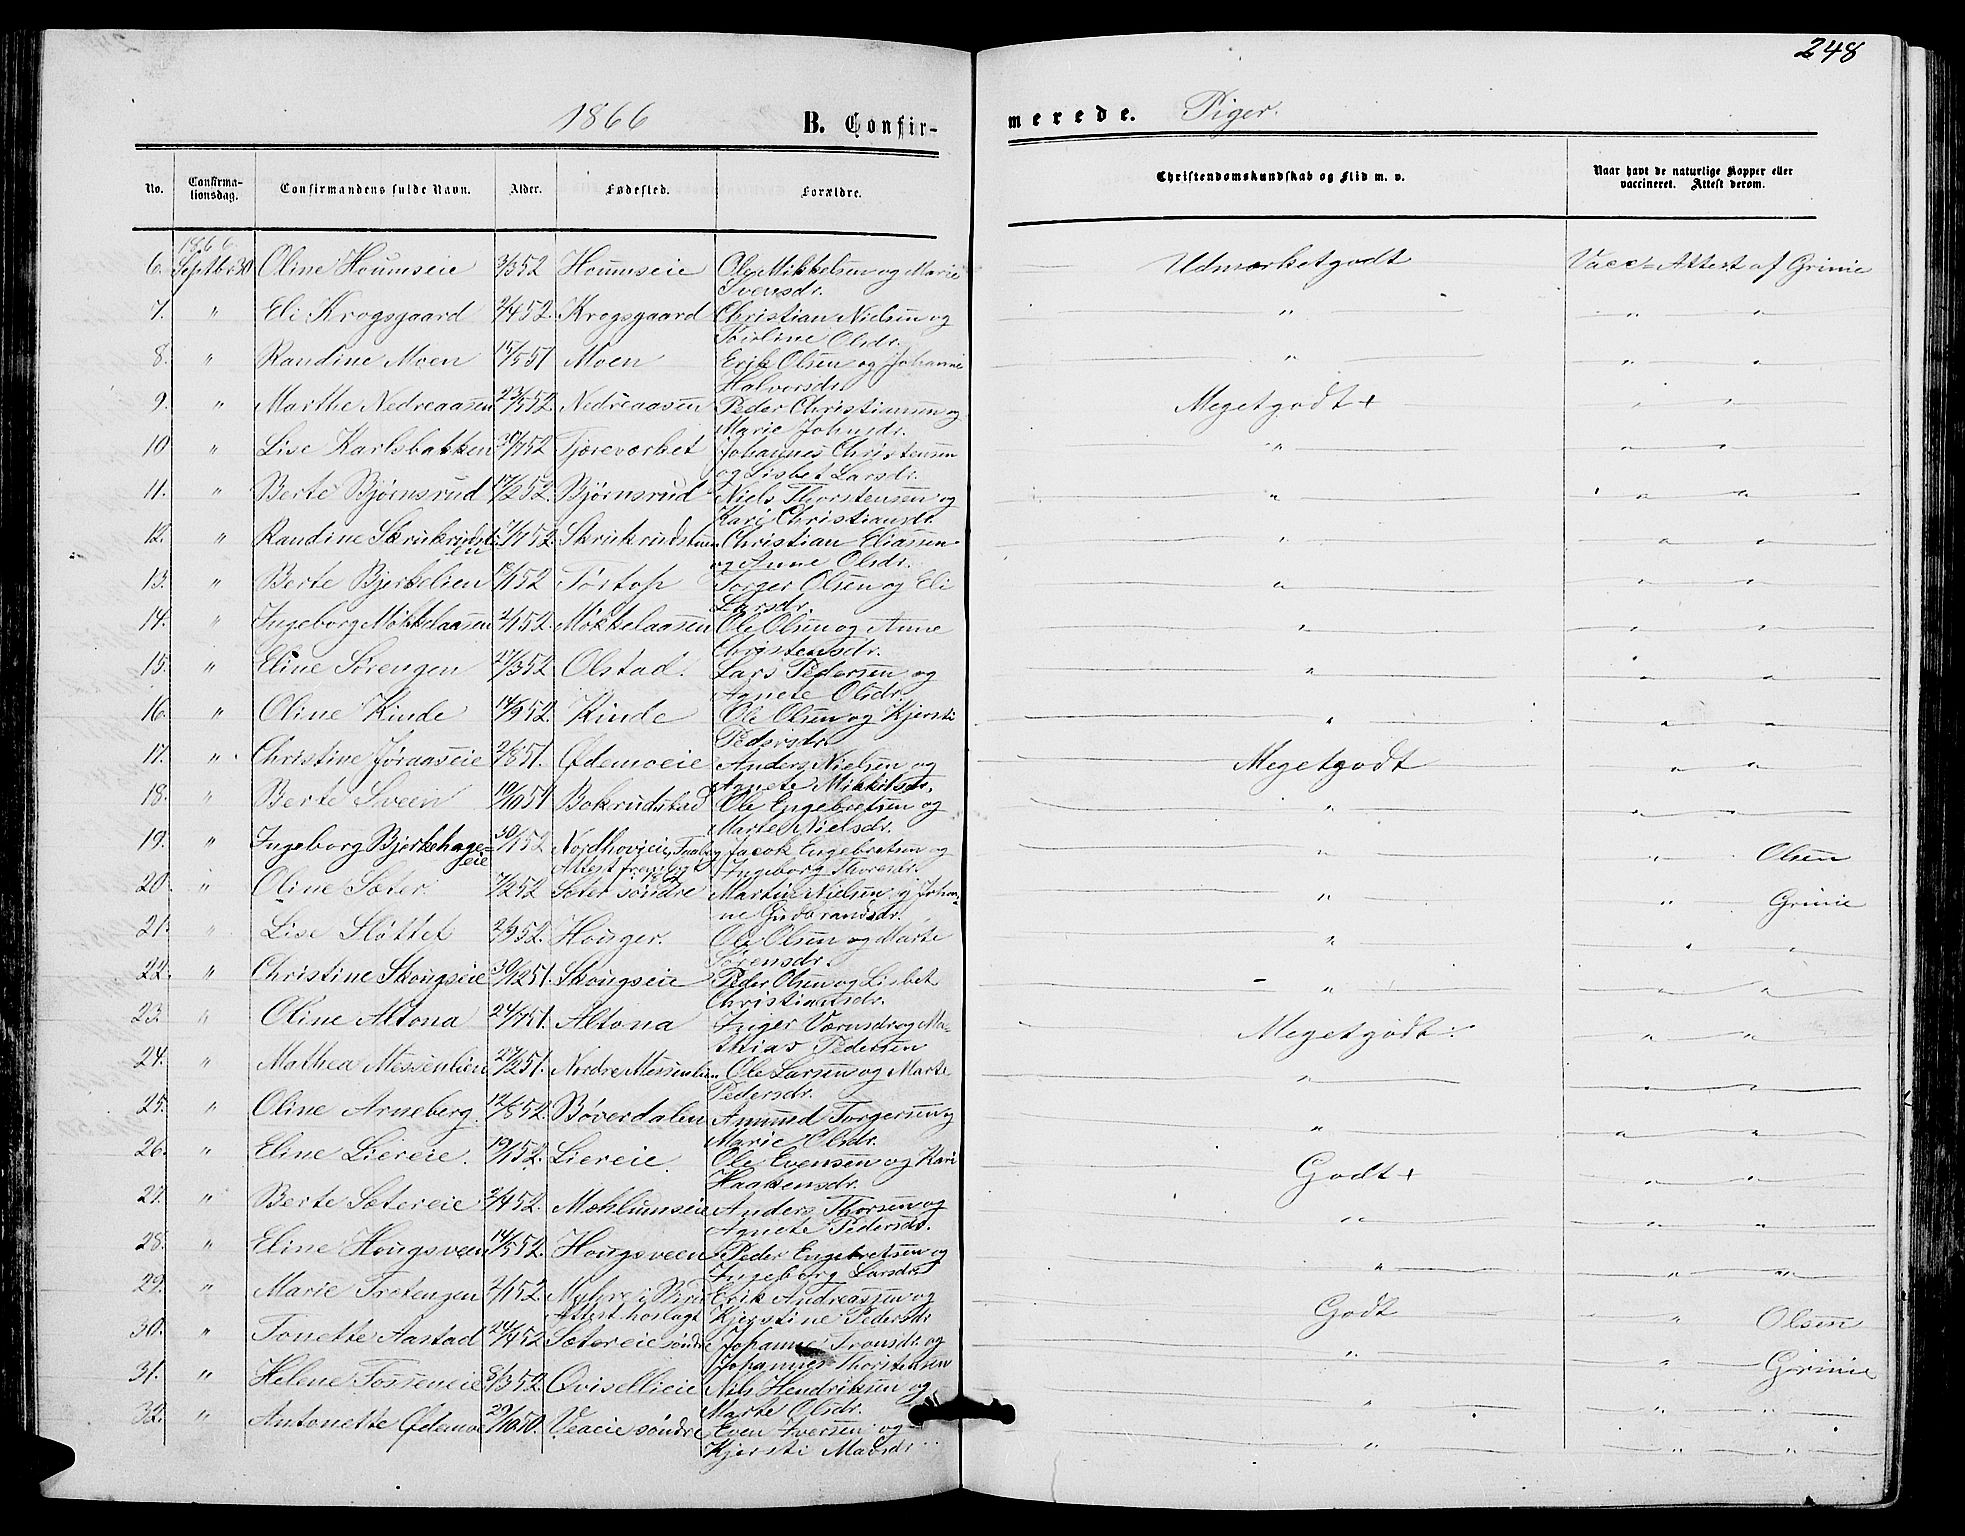 248
1866 B. Confirmerede. Piger.
No. Confirmationsdag. Confirmandens fulde Navn. Alder. Fødested. Forældre. Christendomskundskab og Flid m. v. Naar havt de naturlige Kopper eller vaccineret. Attest derom.
1866
6. Septbr 30 Oline Houmseie 3/3 52 Houmseie Ole Mikkelsen og Marie Udmærket godt Vacc-Attest af Grinie
Svensdr.
7. " Eli Krogsgaard 2/4 52. Krogsgaard Christian Nielsen og " " "
Olsdr.
8. " Randine Moen 15/5 51 Moen Erik Olsen og Johanne " " "
Halvorsdr.
9. " Marthe Nedreaasen 23/5 52. Nedreaasen Peder Christiansen og Meget godt + " "
Marie Johnsdr.
10 " Lise Karlsbakken 30/7 52 Tjæreværket Johannes Christensen " " "
og Lisbet Larsdr.
11. " Berte Bjørnsrud 17/2 52. Bjørnsrud Niels Thorstensen og " " "
Kari Christiansdr.
12. " Randine Skrukrudstu- 7/1 52. Skrukrudstuen Christian Eliassen " " "
en og Anne Olsdr.
13. " Berte Bjerkelien 15/1 52 Tørtop Torger Olsen og Eli " " "
Larsdr.
14. " Ingeborg Møkkelaasen 2/1 52. Møkkelaasen Ole Olsen og Anne " " "
Christensdr.
15. " Eline Sørengen 27/3 52. Olstad. Lars Pedersen og " " "
Agnete Olsdr.
16. " Oline Kinde 14/9 52. Kinde Ole Olsen og Kjersti " " "
Pedersdr.
17. " Christine Jøraaseie 2/8 51. Ødemoeie Anders Nielsen og Meget godt " "
Agnete Mikkelsdr.
18. " Berte Sveen 19/10 51 Bokrudstad Ole Engebretsen og " " "
Marte Nielsdr.
19. " Ingeborg Bjerkehage= 30/1 52 Nordhoveie, Faaberg Jacob Engebretsen og " " Olsen
eie Attest fremlagt Ingeborg Thorsdr.
20. " Oline Sæter. 7/2 52 Sæter søndre Martin Nielsen og Johan= " " Grinie
ne Gudbrandsdr.
21. " Lise Sløttet 2/9 52. Houger. Ole Olsen og Marte " " "
Sørensdr.
22. " Christine Skougseie 30/12 51. Skougseie Peder Olsen og Lisbet " " "
Christiansdr.
23. " Oline Altona 24/7 51. Altona Inger Værnsdr og Ma= Meget godt. " "
thias Pedersen
24. " Mathea Messenlien 27/2 51. Nordre Messenlien Ole Larsen og Marte " " "
Pedersdr.
25. " Oline Arneberg. 12/8 52. Bøverdalen Amund Torgersen og " " "
Marie Olsdr.
26. " Eline Liereie. 19/1 52. Liereie. Ole Evensen og Kari Godt + " "
Haakensdr.
27. " Berte Sætereie 2/4 52. Mæhlumseie Anders Thorsen og " " "
Agnete Pedersdr.
28. " Eline Hougsveen 14/5 52. Hougsveen Peder Engebretsen og " " "
Ingeborg Larsdr
29. " Marie Tretengen 2/1 52. Myhre i Biri Erik Andreassen og Godt " Olsen
Attest hoslagt Kjerstine Pedersdr
30. " Tonette Aastad 24/4 52. Sætereie søndre Johanne Tronsdr. og " " Grinie
Johannes Thorstensen
31. " Helene Fosseneie 8/3 52. Qvisellieie Nils Hendriksen og " " "
Marte Olsdr.
32. " Antonette Ødemoe 29/10 50. Veaeie søndre Even Iversen og " " "
Kjersti Madsdr.